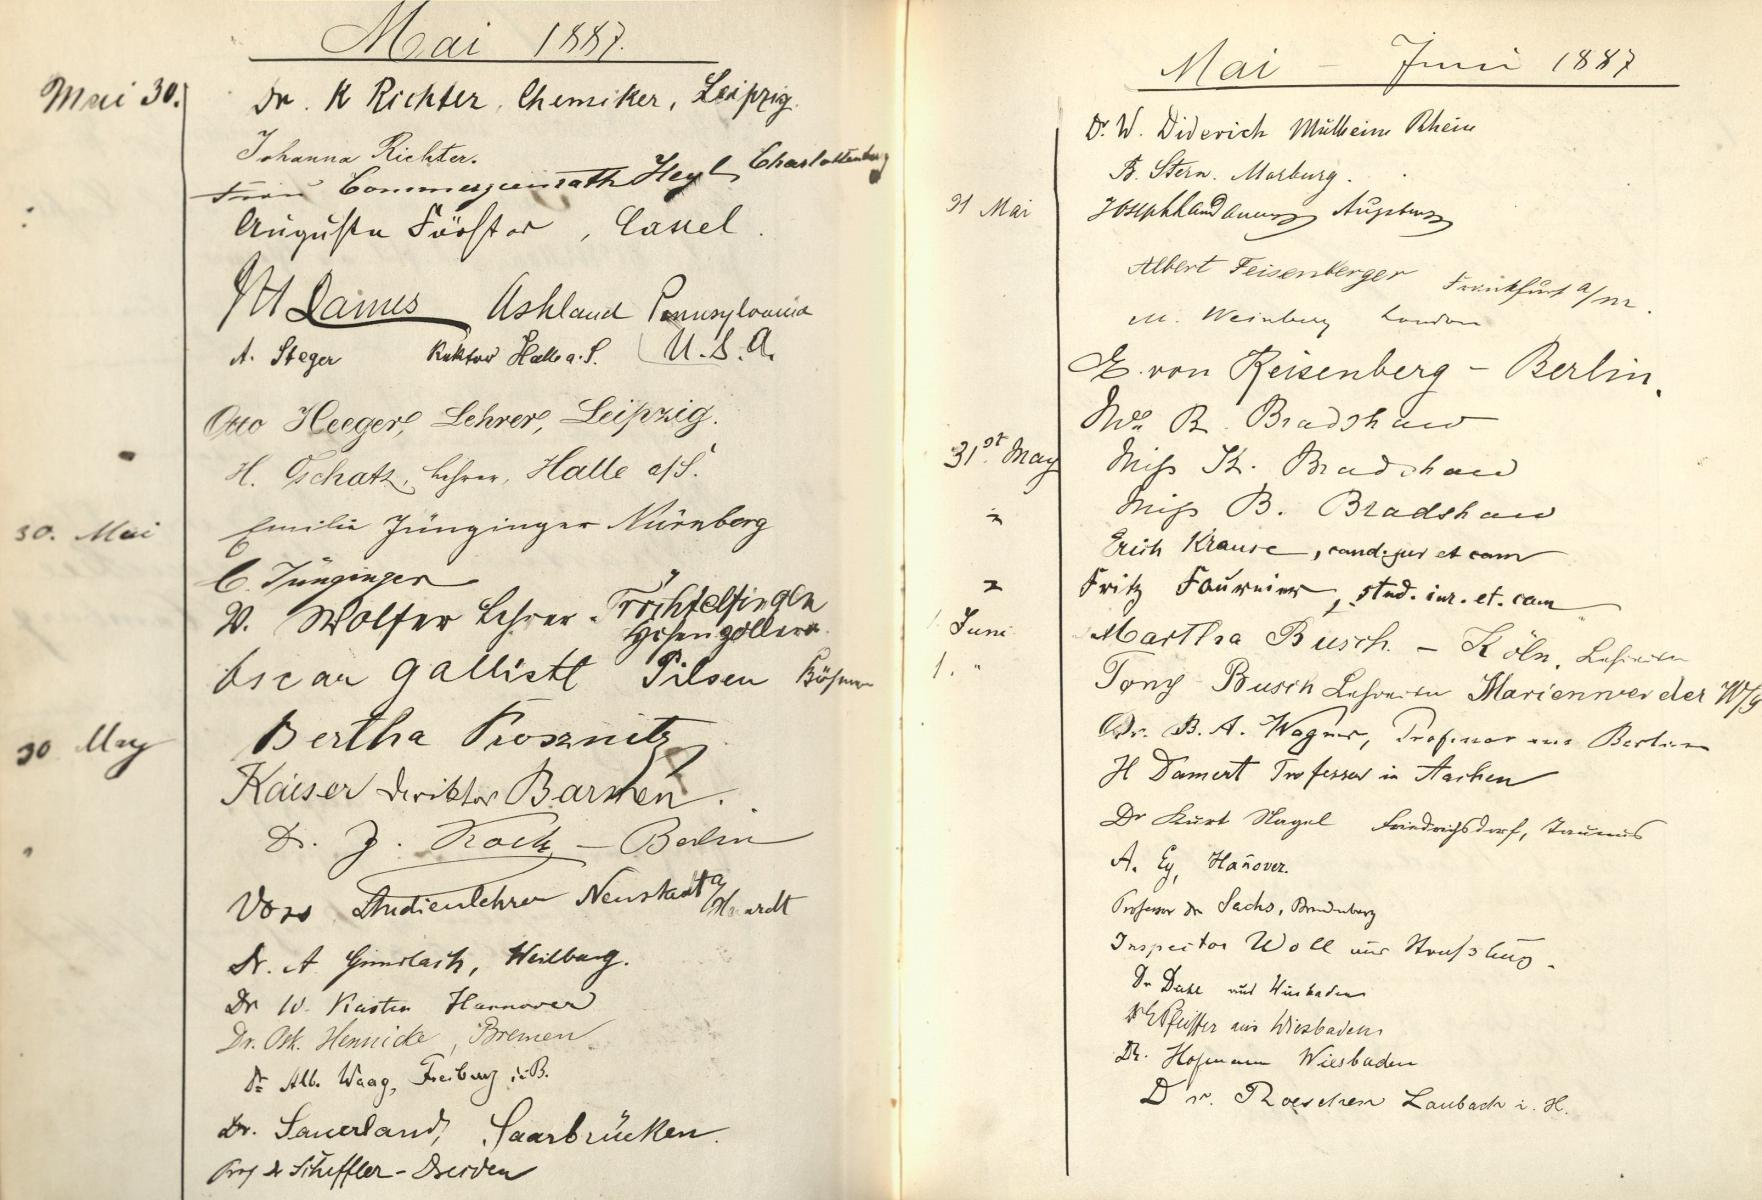 Mai 1887.
Mai 30. Dr. K Richter, Chemiker, Leipzig.
Johanna Richter.
Frau Commerzienrath Heyl, Charlottenburg
Augusta Förster, Cassel.
Ashland Pennsylvania
A. Steger Rektor Halle a. S. U. S. A.
Otto Heeger, Lehrer, Leipzig.
H. Tschatz, Lehrer, Halle a/S.
30. Mai Emilie Jünginger Nürnberg
C. Jünginger
V. Wolfer Lehrer. Trochtelfingen
Hohenzollern.
Oscar Gallistl Pilsen Böhmen
30 May Bertha Prosznitz
Kaiser Direktor Barmen.
Dr. J. Koch – Berlin
Studienlehrer Neustadt a/Haardt
Dr. A Gundlach, Weilburg.
Dr W. Kasten Hannover
Dr. Osk. Hennicke, Bremen
Dr. Alb. Waag, Freiburg i. B.
Dr. Sauerland, Saarbrücken.
Prof Dr Scheffler – Dresden
Mai – Juni 1887
Dr. W. Diderich Mülheim Rhein
B. Stern. Marburg.
31 Mai Joseph Landauer Augsburg
Albert Feisenberger Frankfurt a/M.
M. Weinberg London
E. von Reisenberg – Berlin.
Mrs R. Bradshaw
31st May Miss K. Bradshaw
" Miss B. Bradshaw
Erich Krause, cand. jur et cam
" Fritz Fournier, stud. iur. et. cam
1. Juni Martha Busch. – Köln, Lehrerin
1. " Tony Busch Lehrerin Marienwerder W/p
Dr. B. A. Wagner, Professor aus Berlin
H Damert Professor in Aachen
Dr Kurt Nagel Friedrichsdorf, Taunus
A. Ey, Hanover.
Professor Dr Sachs, Brandenburg
Inspector Woll aus Strassburg.
Dr Dahl aus Wiesbaden
Pfeiffer aus Wiesbaden
Dr. Hofmann Wiesbaden
Dr. Roeschen Laubach i. H.